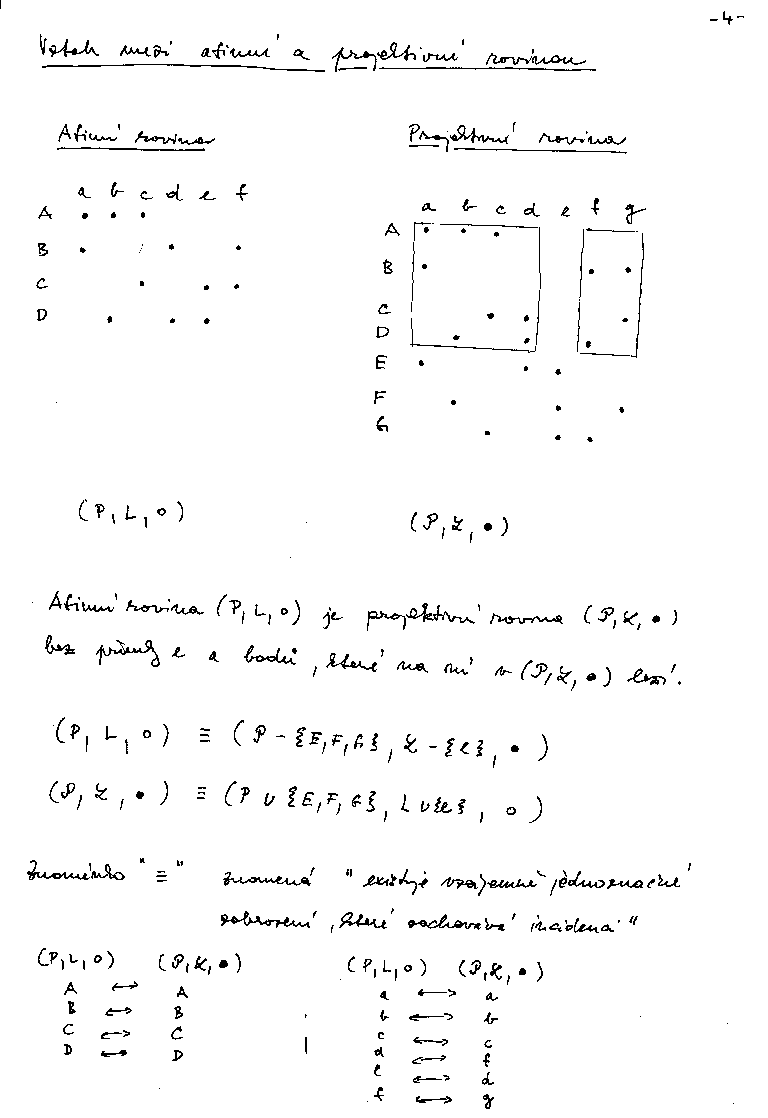 -4-
Vztah mezi afinní a projektivní rovinou
Afinní rovina
Projektivní rovina
a b c d e f
A • • •
B • • •
C • • •
D • • •
a b c d e f g
A • • •
B • • •
C • • •
D • • •
E • • •
F • • •
G • • •
(P, L, ∘)
(𝒫, ℒ, •)
Afinní rovina (P, L, ∘) je projektivní rovina (𝒫, ℒ, •)
bez přímky e a bodů, které na ní v (𝒫, ℒ, •) leží.
(P, L, ∘) ≡ (𝒫 - {E, F, G}, ℒ - {e}, •)
(𝒫, ℒ, •) ≡ (P ∪ {E, F, G}, L ∪ {e}, ∘)
Znaménko "≡" znamená "existuje vzájemně jednoznačné
zobrazení, které zachovává incidenci"
(P, L, ∘) (𝒫, ℒ, •)
A ↔ A
B ↔ B
C ↔ C
D ↔ D
(P, L, ∘) (𝒫, ℒ, •)
a ↔ a
b ↔ b
c ↔ c
d ↔ f
e ↔ d
f ↔ g